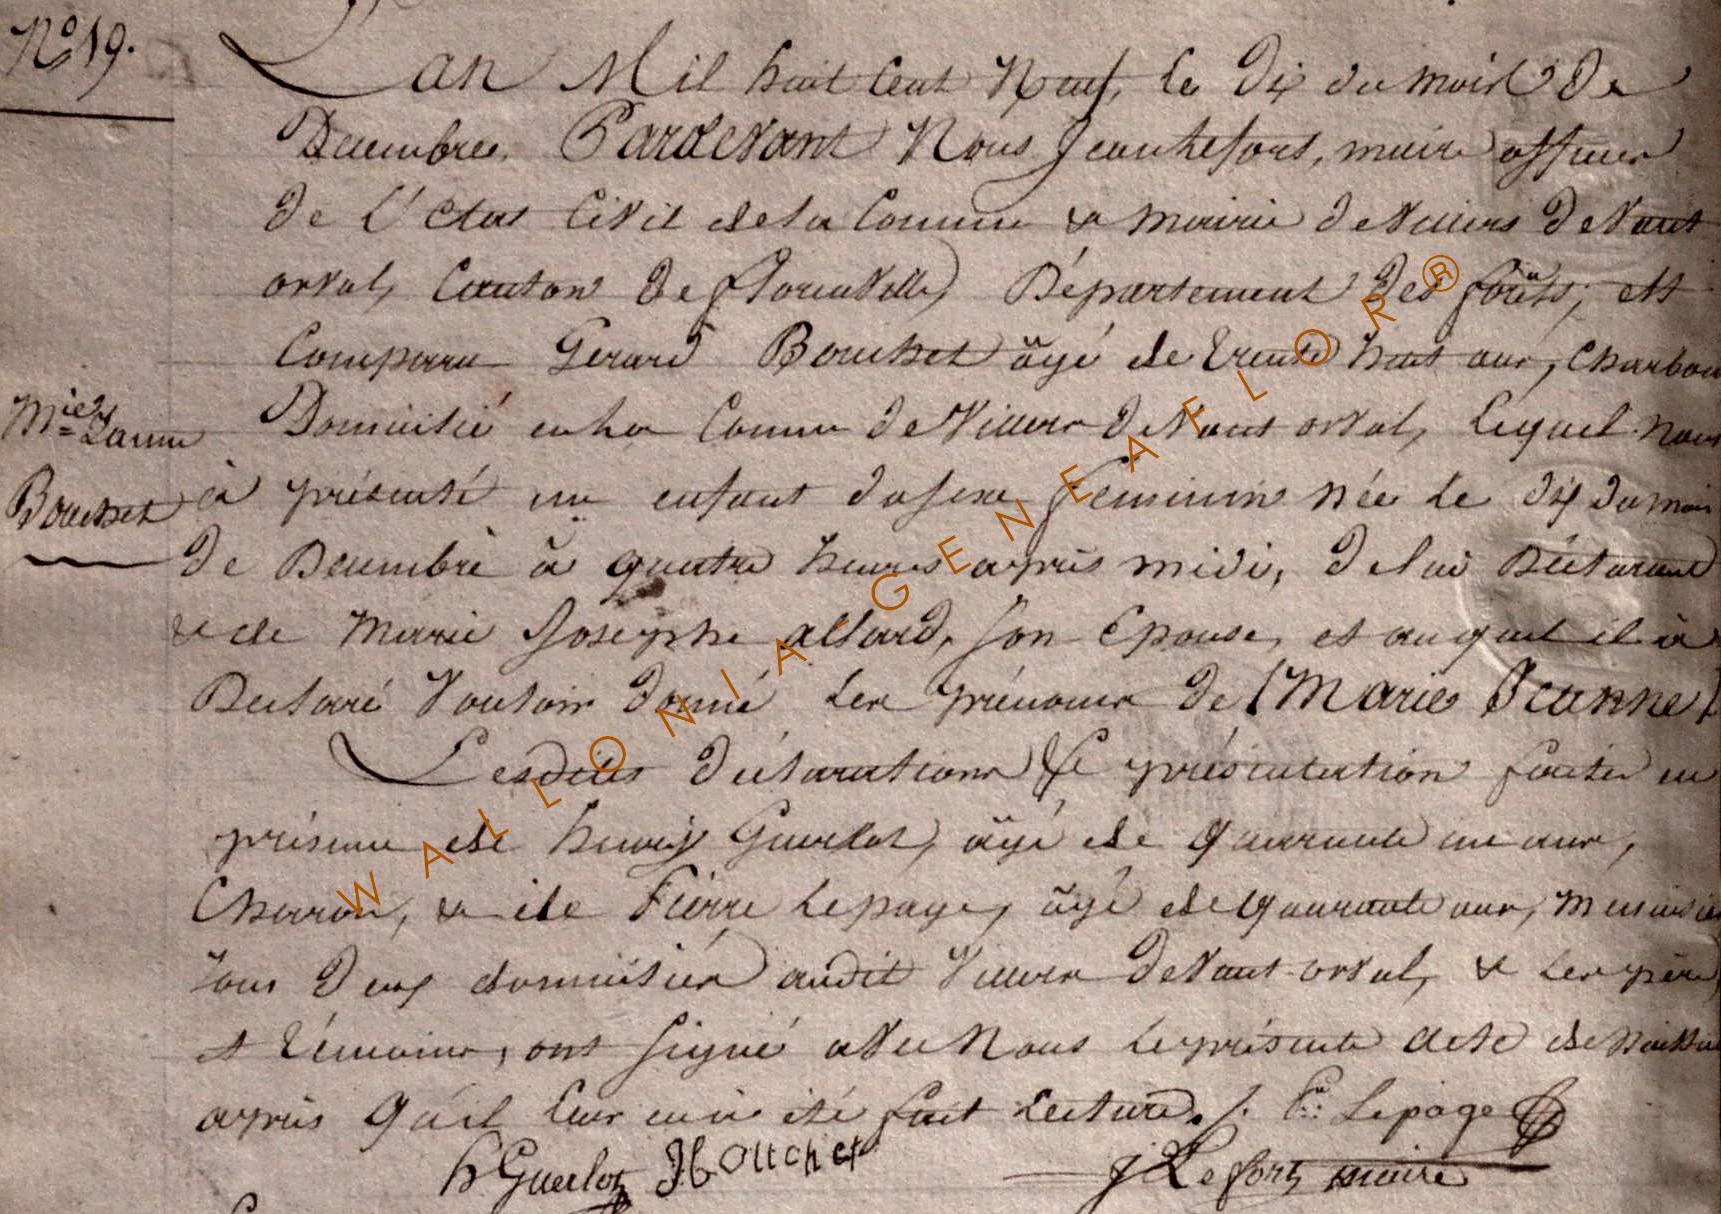 N° 19.
L'an Mil huit Cent Neuf, le dix du mois De
Decembre. Pardevant Nous Jean Lefort, maire officier
De L'Etat Civil de la Commune & Mairie de Villers devant
orval, Canton De florenville, Département Des forêts, est
Comparu Gerard Bouchet âgé de trente huit ans, Charbon
Domicilié en la Commune de Villers devant orval, Lequel nous
Mie Janne
Bouchet
à présenté un enfant du sexe feminin née Le dix du mois
De Decembre à quatre heures après midi, de lui Déclarant
& de Marie Josephe allard, son Epouse, et auquel il à
Declaré Vouloir donné Les prénoms de (Marie Jeanne)
Lesdites déclarations & présentation faites en
présence de henry Guerlot, âgé de quarante un ans,
Charon, & de Pierre Lepage, âgé de quarante ans, menuisier
tous deux domiciliés audit Villers devant orval, & Les père
et témoins, ont signé avec Nous Le présente acte de naissan
après qu'il leur en à été fait Lecture. /. Pre Lepage
h Guerlot J Bouchet J Lefort maire
WALLONIA - GENEAFLOR®